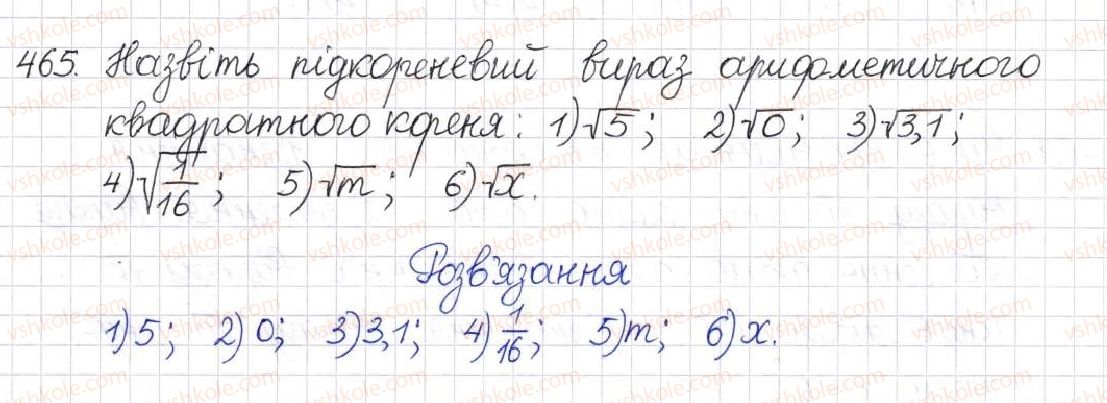 465. Назвіть підкореневий вираз арифметичного
квадратного кореня: 1) √5; 2) √0; 3) √3,1;
4) √(1/16); 5) √m; 6) √x.
Розв'язання
1) 5; 2) 0; 3) 3,1; 4) 1/16; 5) m; 6) x.